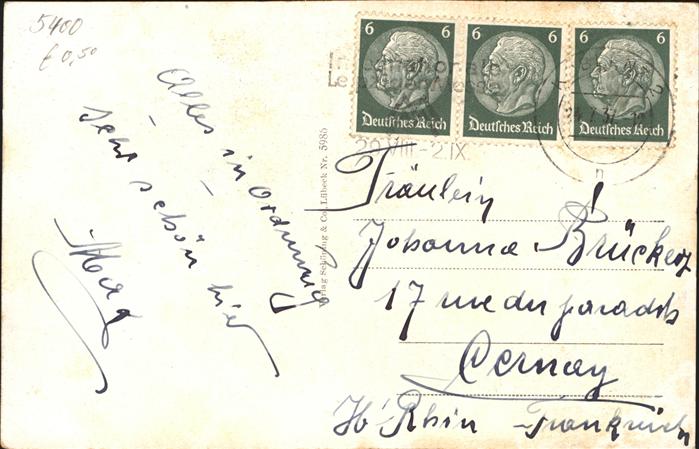 5400
£ 0,50
Alles in Ordnung
sehr schön hier
6 6 6 6 6 6
Deutsches Reich Deutsches Reich Deutsches Reich
29.VIII.-2.IX.
Verlag Schöning & Co., Lübeck Nr. 5985
Fräulein
Johanna Brücker
17 rue du paradis
Cernay
Ht-Rhin - Frankreich